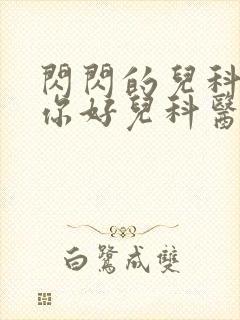 閃閃的兒科
你好兒科醫
白鷺成雙